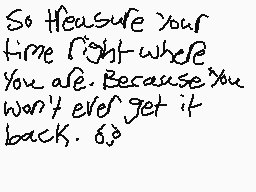 So treasure your
time right where
you are. Because you
won't ever get it
back.